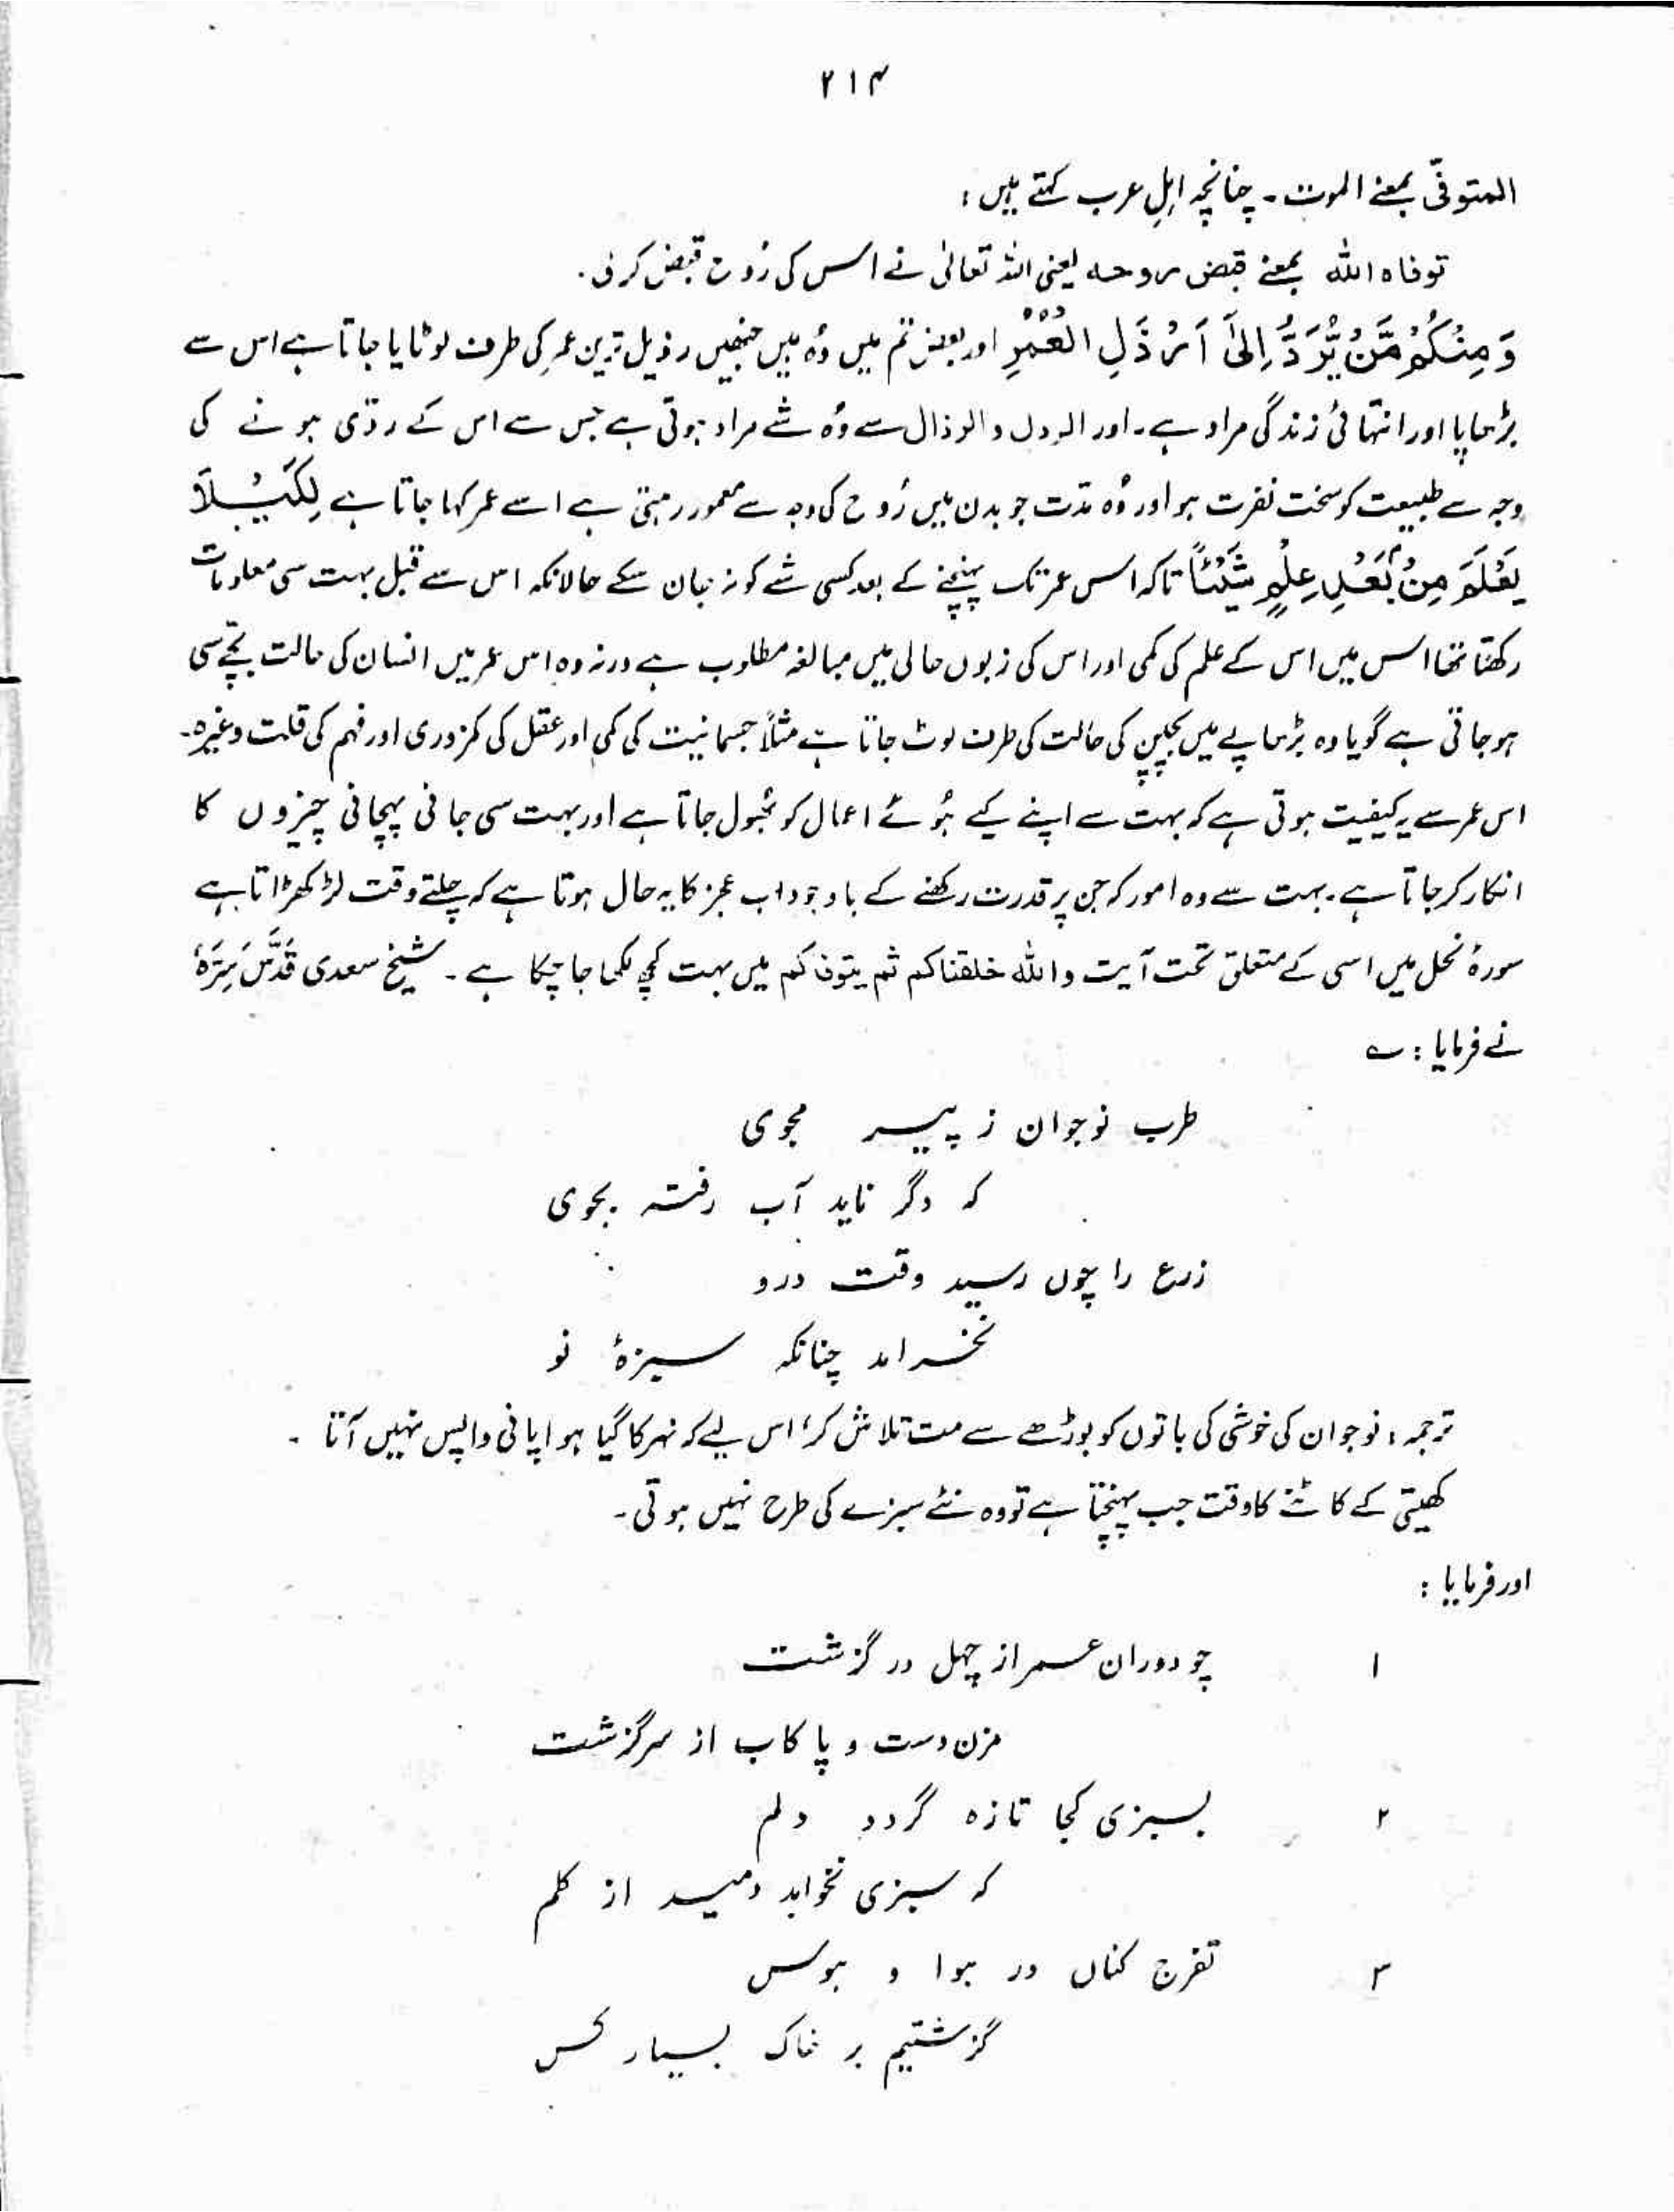 ۲۱۴
المتوفّی بمعنے الموت۔ چنانچہ اہلِ عرب کہتے ہیں:
توفاہ اللہ بمعنے قبض روحہ یعنی اللہ تعالیٰ نے اس کی رُوح قبض کرلی۔
وَمِنْكُمْ مَّنْ يُّرَدُّ اِلٰٓى اَرْذَلِ الْعُمُرِ اور بعض تم میں وُہ ہیں جنھیں رذیل ترین عمر کی طرف لوٹایا جاتا ہے اس سے
بڑھاپا اور انتہائی زندگی مراد ہے۔ اور الرذل والرذال سے وُہ شے مراد ہوتی ہے جس سے اس کے ردّی ہونے کی
وجہ سے طبیعت کو سخت نفرت ہو اور وُہ مدّت جو بدن میں رُوح کی وجہ سے معمور رہتی ہے اسے عمر کہا جاتا ہے لِكَيْلَا
يَعْلَمَ مِنْۢ بَعْدِ عِلْمٍ شَيْـًٔا تاکہ اس عمر تک پہنچنے کے بعد کسی شے کو نہ جان سکے حالانکہ اس سے قبل بہت سی معلومات
رکھتا تھا اس میں اس کے علم کی کمی اور اس کی زبوں حالی میں مبالغہ مطلوب ہے ورنہ وہ اس عمر میں انسان کی حالت بچّے سی
ہو جاتی ہے گویا وہ بڑھاپے میں بچپن کی حالت کی طرف لوٹ جاتا ہے مثلاً جسمانیت کی کمی اور عقل کی کمزوری اور فہم کی قلت وغیرہ۔
اس عمر سے یہ کیفیت ہوتی ہے کہ بہت سے اپنے کیے ہُوئے اعمال کو بھُول جاتا ہے اور بہت سی جانی پہچانی چیزوں کا
انکار کر جاتا ہے۔ بہت سے وہ امور کہ جن پر قدرت رکھنے کے باوجود اب عجز کا یہ حال ہوتا ہے کہ چلتے وقت لڑکھڑاتا ہے
سورۂ نحل میں اسی کے متعلق تحت آیت واللہ خلقناکم ثم یتوفاکم میں بہت کچھ لکھا جا چکا ہے۔ شیخ سعدی قَدَّسَ سِرَّہٗ
نے فرمایا: ؎
طرب نوجوان ز پیر مجوی
کہ دگر ناید آب رفتہ بجوی
زرع را چوں رسید وقت درو
نخرامد چنانکہ سبزۂ نو
ترجمہ: نوجوان کی خوشی کی باتوں کو بوڑھے سے مت تلاش کر، اس لیے کہ نہر کا گیا ہوا پانی واپس نہیں آتا۔
کھیتی کے کاٹنے کا وقت جب پہنچتا ہے تو وہ نئے سبزے کی طرح نہیں ہوتی۔
اور فرمایا:
۱ چو دوران عمر از چہل در گزشت
مزن دست و پا کاب از سر گزشت
۲ بسبزی کجا تازہ گردد دلم
کہ سبزی نخواہد دمید از گلم
۳ تفرج کناں در ہوا و ہوس
گزشتیم بر خاک بسیار کس